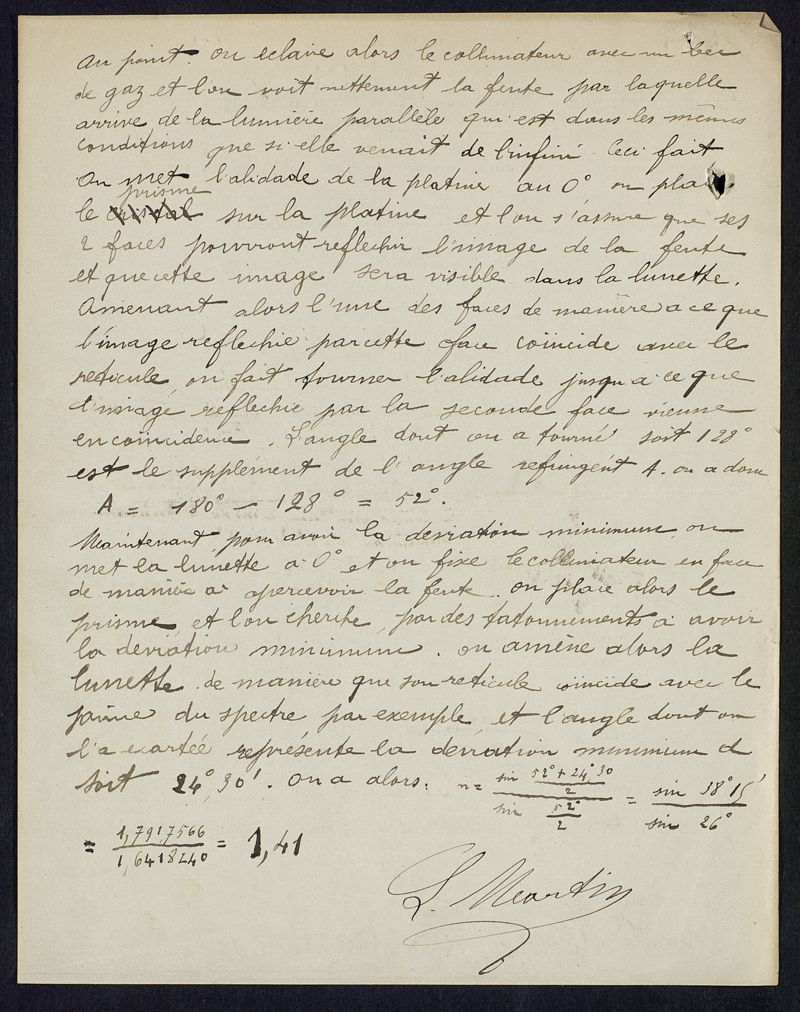 au point. On eclaire alors le collimateur avec un bec
de gaz et l'on voit nettement la fente par laquelle
arrive de la lumière parallèle qui est dans les mêmes
conditions que si elle venait de l'infini. Ceci fait
On met l'alidade de la platine au 0° on place
prisme
le cristal sur la platine et l'on s'assure que ses
2 faces pourront reflechir l'image de la fente
et que cette image sera visible dans la lunette.
Amenant alors l'une des faces de manière a ce que
l'image reflechie par cette face coïncide avec le
reticule, on fait tourner l'alidade jusqu'a ce que
l'image reflechie par la seconde face vienne
en coïncidence. L'angle dont on a tourné soit 128°
est le supplément de l'angle refringent A. on a donc
A = 180° - 128° = 52°.
Maintenant pour avoir la deviation minimum on
met la lunette a 0° et on fixe le collimateur en face
de manière a apercevoir la fente. on place alors le
prisme, et l'on cherche par des tatonnements a avoir
la deviation minimum. on amène alors la
lunette de manière que son reticule coïncide avec le
jaune du spectre par exemple, et l'angle dont on
l'a ecartée représente la deviation minimum d
soit 24°,30'. On a alors: n = sin 52° + 24°,30 / 2 / sin 52° / 2 = sin 38° 15' / sin 26°
= 1,7917566 / 1,6418240 = 1,41
L. Martin